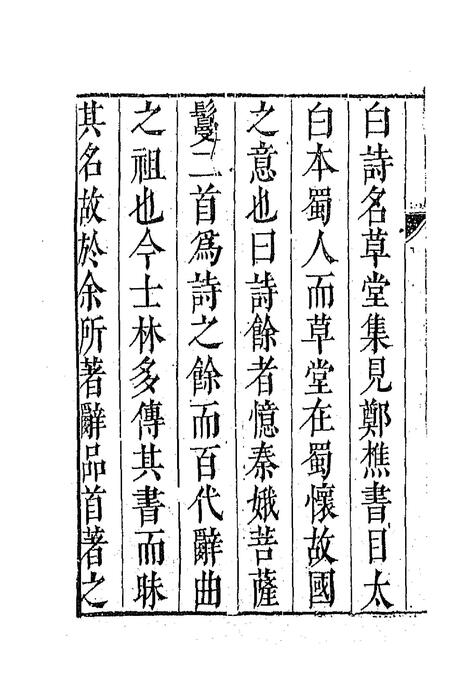 白詩名草堂集見鄭樵書目太
白本蜀人而草堂在蜀懷故國
之意也曰詩餘者憶秦娥菩薩
鬘二首爲詩之餘而百代辭曲
之祖也今士林多傳其書而昧
其名故於余所著辭品首著之